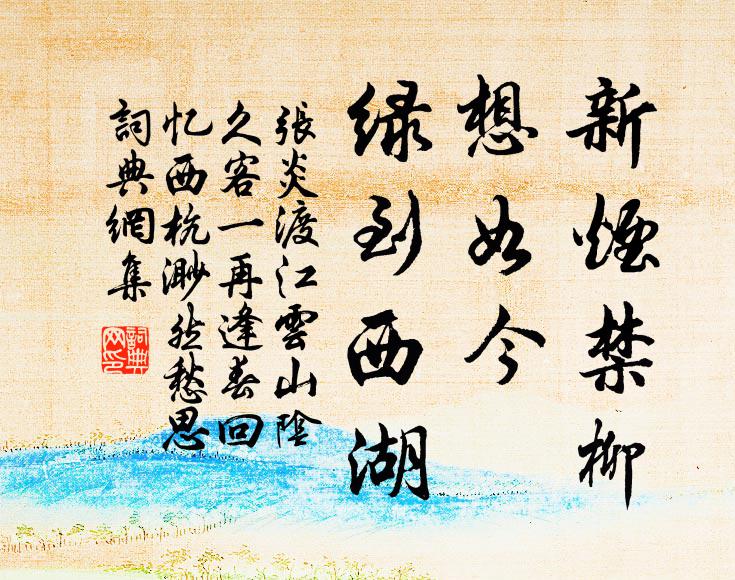 新煙禁柳
想如今
绿到西湖
張炎渡江雲山陰
久客一再逢春回
忆西杭渺然愁思
詞典網集
詞典
网印